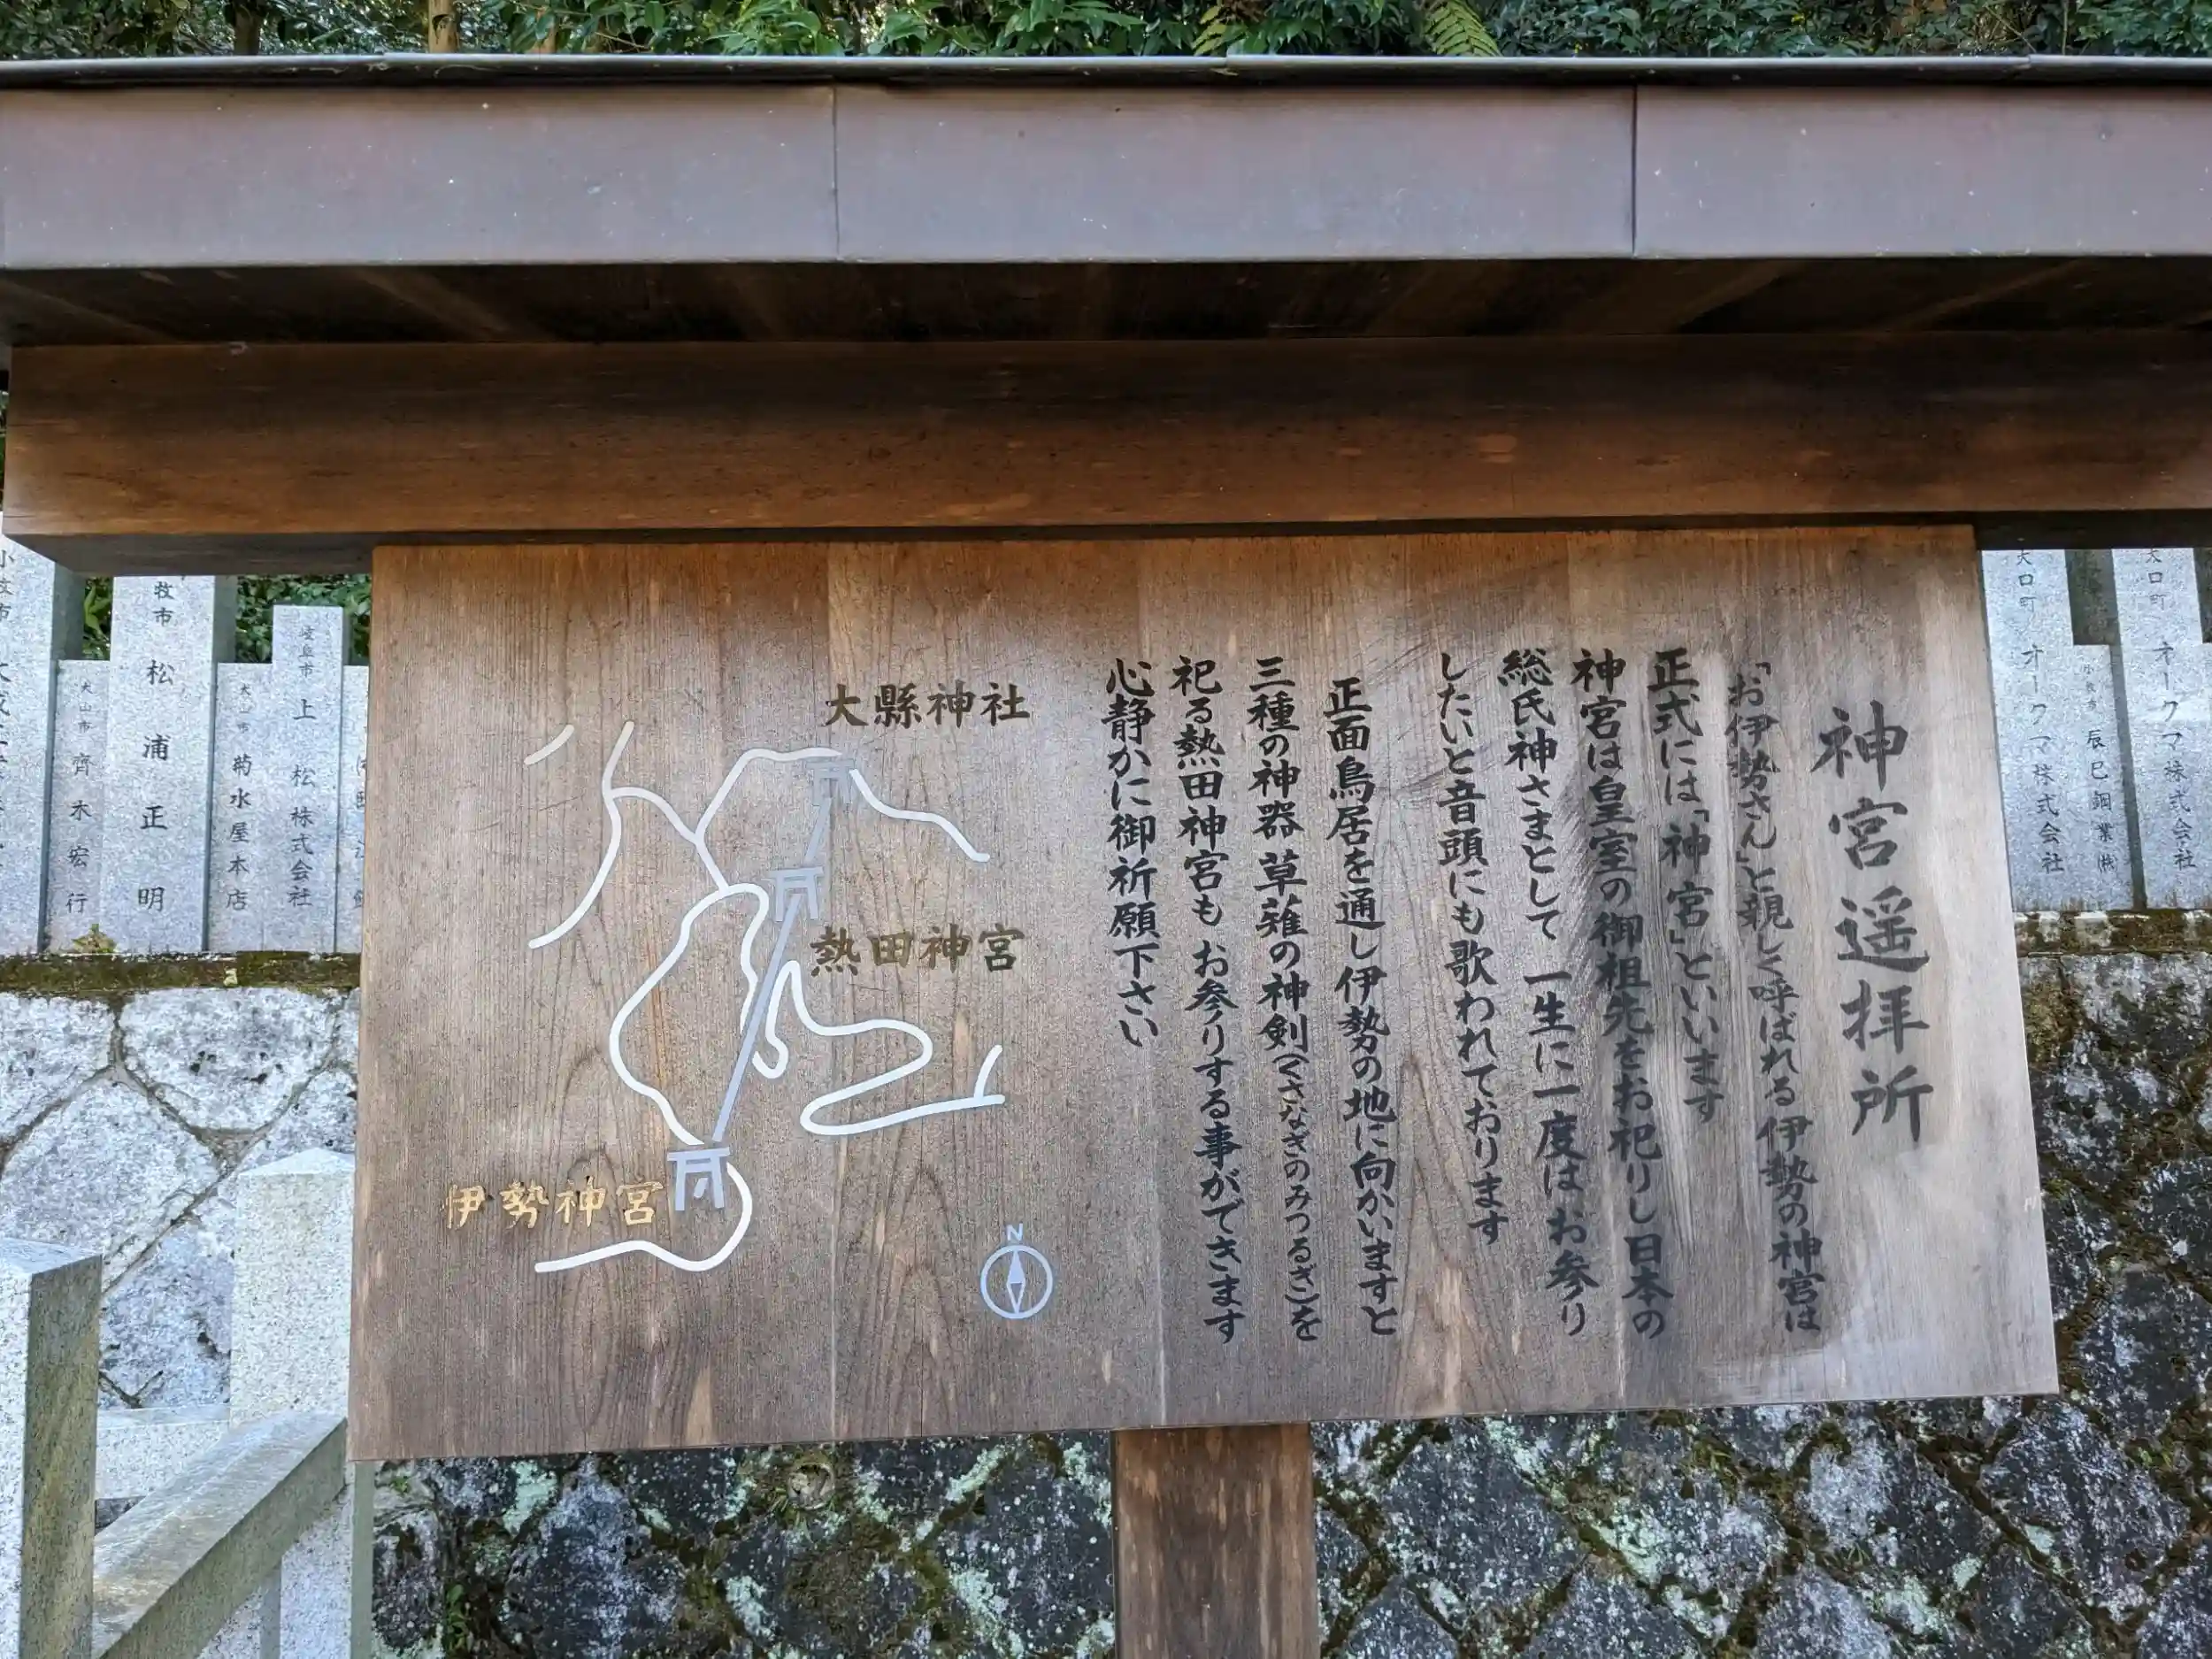 神宮遥拝所
「お伊勢さん」と親しく呼ばれる伊勢の神宮は
正式には「神宮」といいます
神宮は皇室の御祖先をお祀りし日本の
総氏神さまとして 一生に一度はお参り
したいと音頭にも歌われております
正面鳥居を通し伊勢の地に向かいますと
三種の神器 草薙の神剣(くさなぎのみつるぎ)を
祀る熱田神宮も お参りする事ができます
心静かに御祈願下さい
大縣神社
熱田神宮
伊勢神宮
N
大口町 オークマ株式会社
辰巳鋼業㈱
大口町 オークマ株式会社
上松株式会社
菊水屋本店
牧市 松浦正明
犬山市 齊木宏行
小牧市